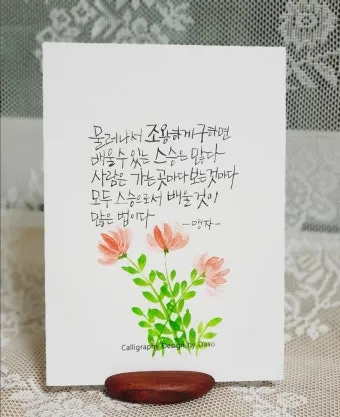 물러나서 조용하게 구하면
배울 수 있는 스승은 많다
사람은 가는 곳마다 보는 것마다
모두 스승으로서 배울 것이
많은 법이다
-맹자-
Calligraphy Design by Daso